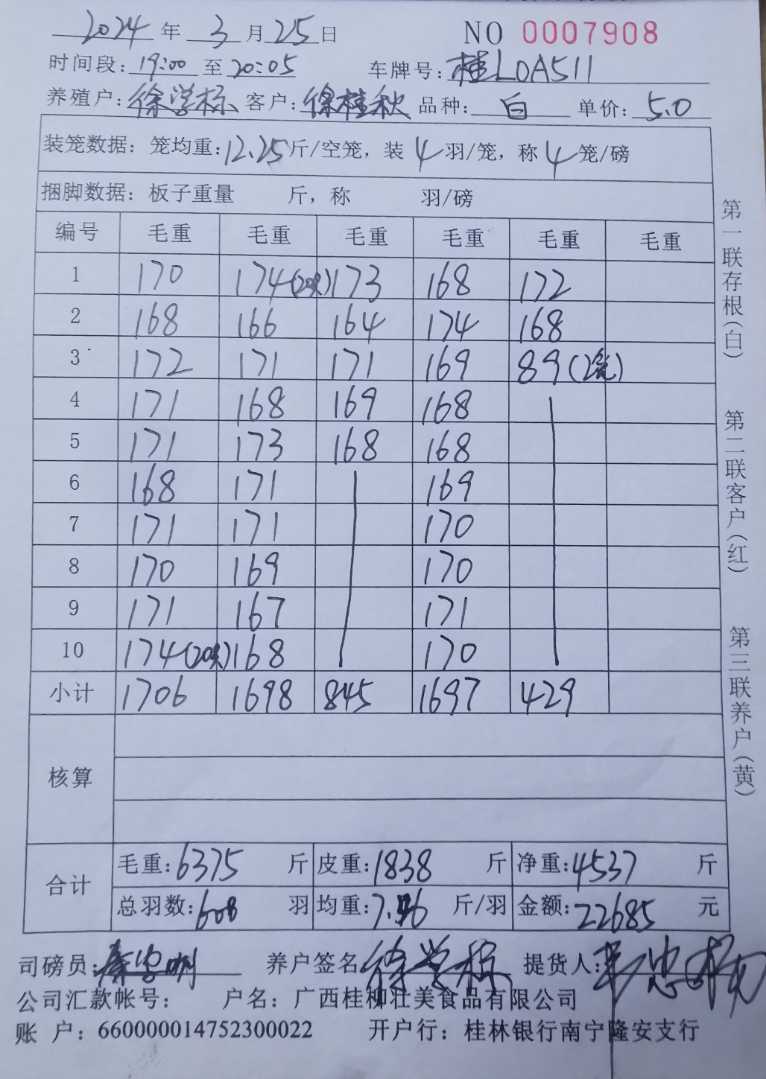 2024 年 3 月 25 日 NO 0007908
时间段: 19:00 至 20:05 车牌号: 桂L0A511
养殖户: 徐学标 客户: 徐桂秋 品种: 白 单价: 5.0
装笼数据: 笼均重: 12.25 斤/空笼, 装 4 羽/笼, 称 4 笼/磅
捆脚数据: 板子重量 斤, 称 羽/磅
编号 毛重 毛重 毛重 毛重 毛重 毛重
1 170 174(20只) 173 168 172
2 168 166 164 174 168
3 172 171 171 169 89(2笼)
4 171 168 169 168
5 171 173 168 168
6 168 171 169
7 171 171 170
8 170 169 170
9 171 167 171
10 174(20只) 168 170
小计 1706 1698 845 1697 429
核算
合计 毛重: 6375 斤 皮重: 1838 斤 净重: 4537 斤
总羽数: 608 羽 均重: 7.46 斤/羽 金额: 22685 元
司磅员: 养户签名 徐学标 提货人:
公司汇款帐号: 户名: 广西桂柳壮美食品有限公司
账 户: 660000014752300022 开户行: 桂林银行南宁隆安支行
第一联存根(白)
第二联客户(红)
第三联养户(黄)